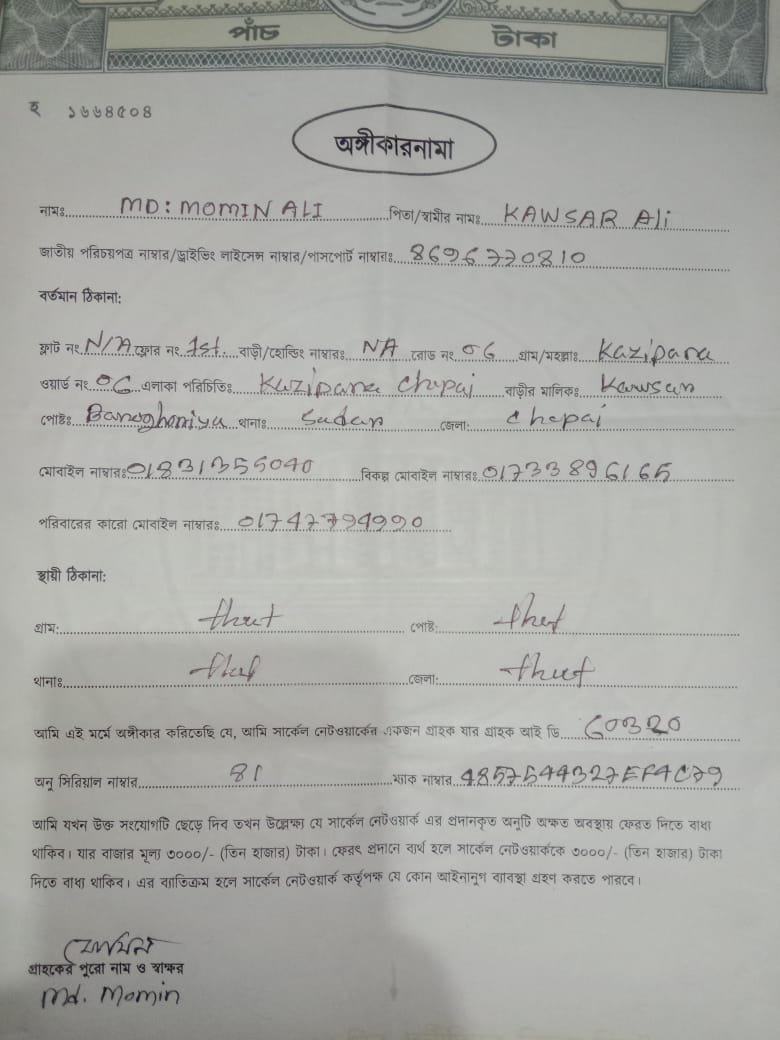 পাঁচ টাকা
হ ১৬৬৪৫০৪
অঙ্গীকারনামা
নামঃ MD: MOMIN ALI পিতা/স্বামীর নামঃ KAWSAR Ali
জাতীয় পরিচয়পত্র নাম্বার/ড্রাইভিং লাইসেন্স নাম্বার/পাসপোর্ট নাম্বারঃ 8696770810
বর্তমান ঠিকানা:
ফ্লাট নং N/A ফ্লোর নং 1st. বাড়ী/হোল্ডিং নাম্বারঃ NA রোড নং ০6 গ্রাম/মহল্লাঃ Kazipara
ওয়ার্ড নং ০6 এলাকা পরিচিতিঃ Kazipara Chapai বাড়ীর মালিকঃ Kawsar
পোষ্টঃ থানাঃ Sadar জেলা: Chapai
মোবাইল নাম্বারঃ 01831355040 বিকল্প মোবাইল নাম্বারঃ 01733896165
পরিবারের কারো মোবাইল নাম্বারঃ 01747794990
স্থায়ী ঠিকানা:
গ্রাম: পোষ্ট:
থানাঃ জেলা:
আমি এই মর্মে অঙ্গীকার করিতেছি যে, আমি সার্কেল নেটওয়ার্কের একজন গ্রাহক যার গ্রাহক আই ডি 60320
অনু সিরিয়াল নাম্বার 81 ম্যাক নাম্বার 4857544327EF4C79
আমি যখন উক্ত সংযোগটি ছেড়ে দিব তখন উল্লেক্ষ্য যে সার্কেল নেটওয়ার্ক এর প্রদানকৃত অনুটি অক্ষত অবস্থায় ফেরত দিতে বাধ্য
থাকিব। যার বাজার মূল্য ৩০০০/- (তিন হাজার) টাকা। ফেরৎ প্রদানে ব্যর্থ হলে সার্কেল নেটওয়ার্ককে ৩০০০/- (তিন হাজার) টাকা
দিতে বাধ্য থাকিব। এর ব্যতিক্রম হলে সার্কেল নেটওয়ার্ক কর্তৃপক্ষ যে কোন আইনানুগ ব্যবস্থা গ্রহণ করতে পারবে।
মোমিন
গ্রাহকের পুরো নাম ও স্বাক্ষর
Md. Momin